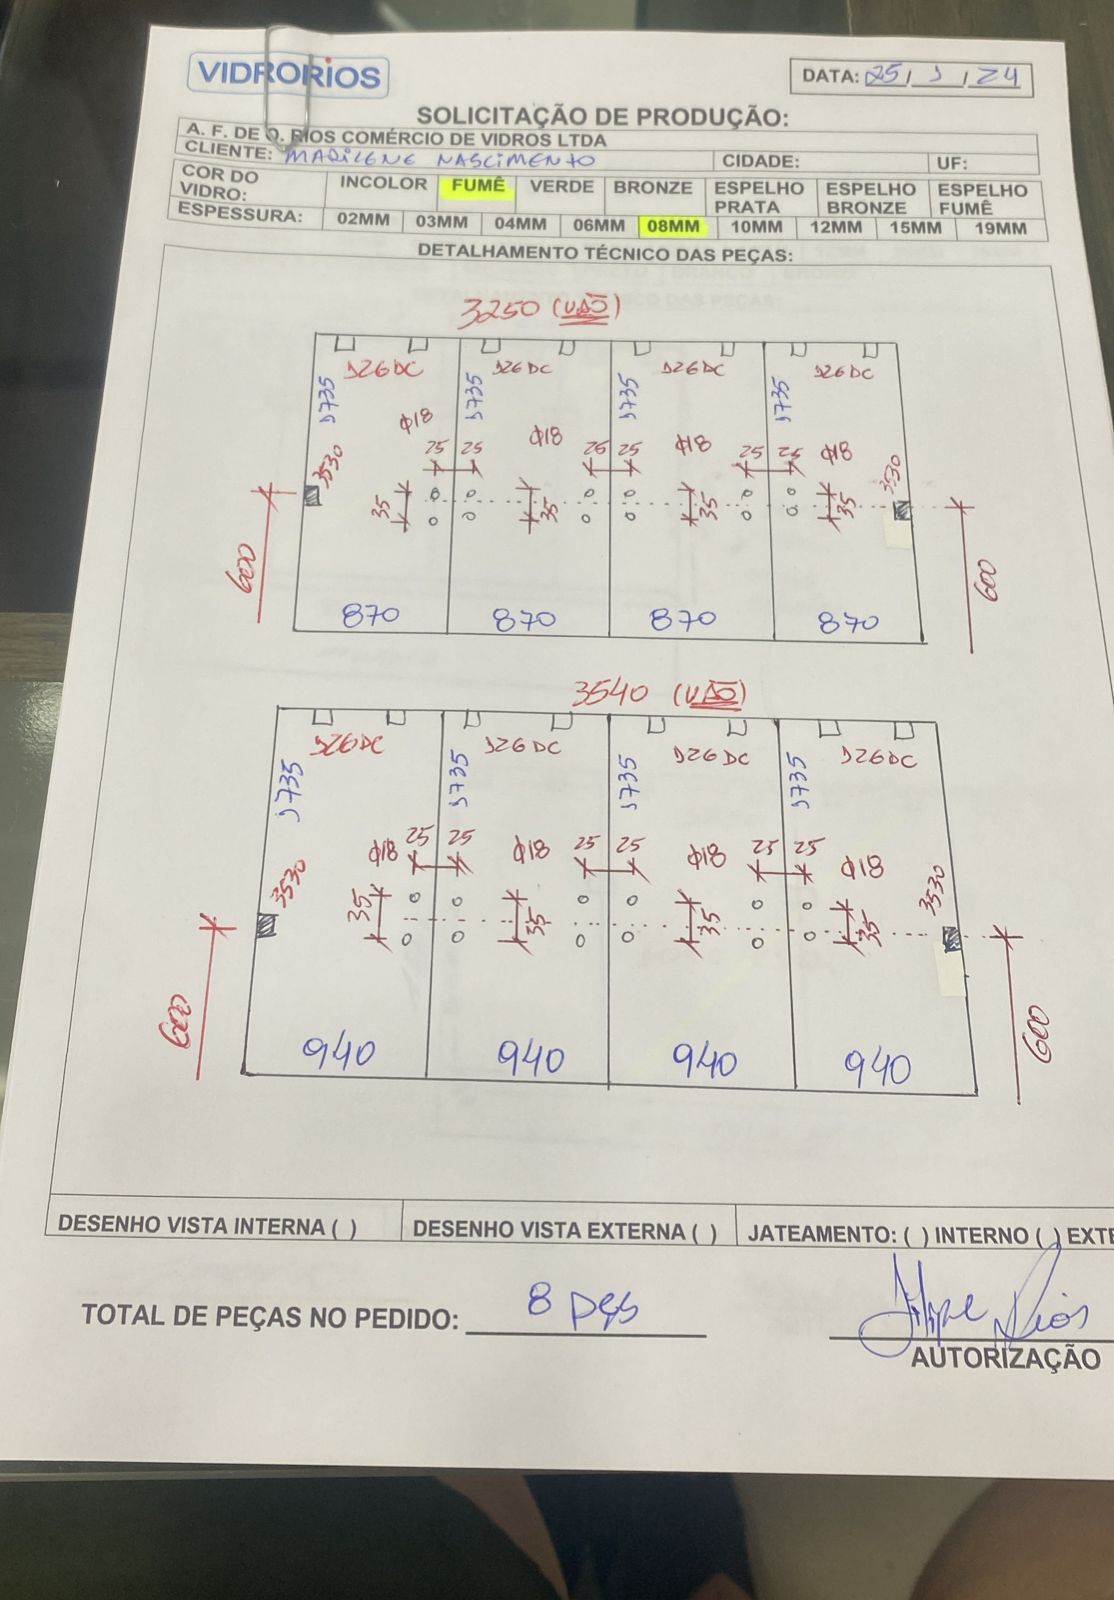 VIDRORIOS
DATA: 25/1/24
SOLICITAÇÃO DE PRODUÇÃO:
A. F. DE O. RIOS COMÉRCIO DE VIDROS LTDA
CLIENTE: MARILENE NASCIMENTO CIDADE: UF:
COR DO VIDRO: INCOLOR FUMÊ VERDE BRONZE ESPELHO PRATA ESPELHO BRONZE ESPELHO FUMÊ
ESPESSURA: 02MM 03MM 04MM 06MM 08MM 10MM 12MM 15MM 19MM
DETALHAMENTO TÉCNICO DAS PEÇAS:
3250 (VÃO)
126DC 126DC 126DC 126DC
1735 1735 1735 1735
Φ18 Φ18 Φ18 Φ18
25 25 25 25 25 25
3530 3530
35 35 35 35
600 600
870 870 870 870
3540 (VÃO)
126DC 126DC 126DC 126DC
1735 1735 1735 1735
25 25 25 25 25 25
Φ18 Φ18 Φ18 Φ18
3530 3530
35 35 35 35
600 600
940 940 940 940
DESENHO VISTA INTERNA ( ) DESENHO VISTA EXTERNA ( ) JATEAMENTO: ( ) INTERNO ( ) EXTE
TOTAL DE PEÇAS NO PEDIDO: 8 pçs
Filipe Rios
AUTORIZAÇÃO